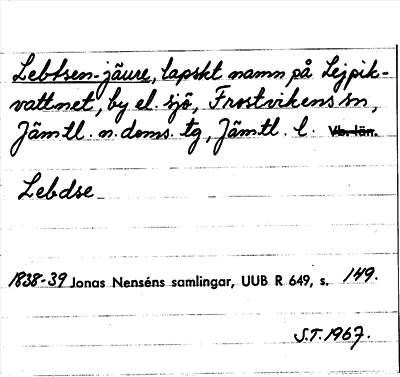 Lebtsen-jäure, lapskt namn på Lejpik-
vattnet, by el. sjö, Frostvikens sn,
Jämtl. n. doms. tg, Jämtl. l. Vb. län.
Lebdse
1838-39 Jonas Nenséns samlingar, UUB R 649, s. 149.
S.T. 1967.